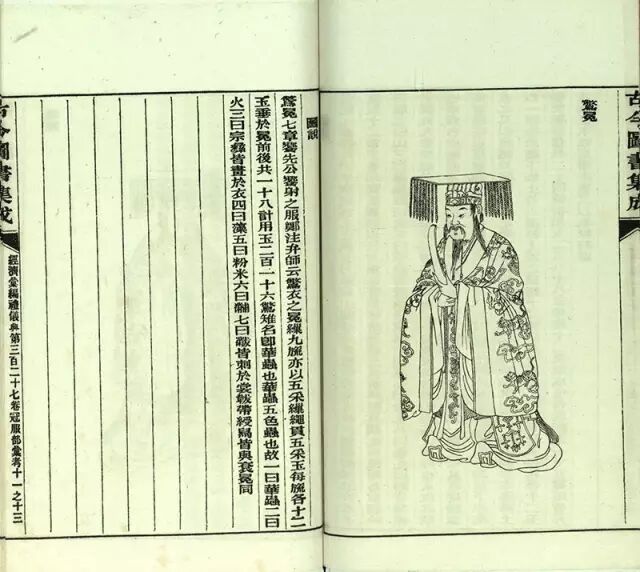 古今圖書集成
鷩冕
圖說
鷩冕七章饗先公饗射之服鄭注弁師云鷩衣之冕繅九旒亦以五采繅繩貫五采玉每旒各十二
玉垂於冕前後共一十八計用玉二百一十六鷩雉名卽華蟲也華蟲五色蟲也故一曰華蟲二曰
火三曰宗彝皆畫於衣四曰藻五曰粉米六曰黼七曰黻皆刺於裳韍帶綬舄皆與袞冕同
古今圖書集成
經濟彙編禮儀典第三百二十七卷冠服部彙考十一之十三